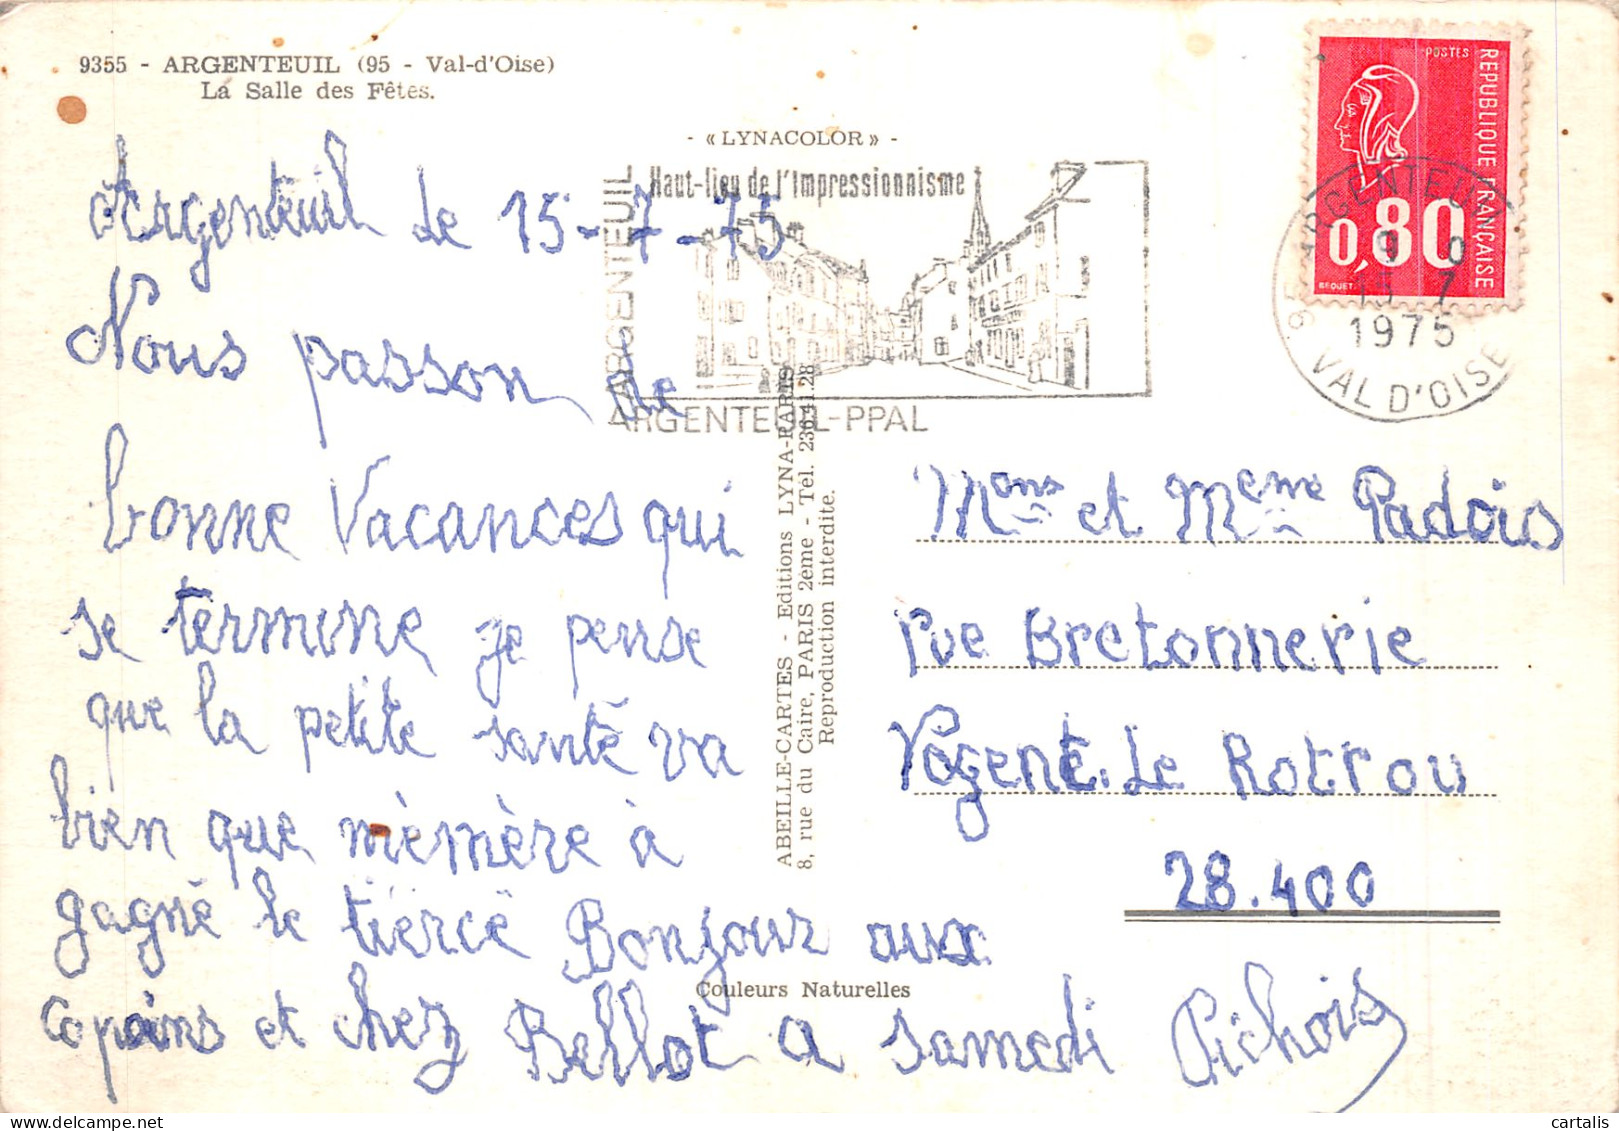 9355 - ARGENTEUIL (95 - Val-d'Oise)
La Salle des Fêtes.
- « LYNACOLOR » -
Argenteuil le 15-7-75
Nous passon de
bonne Vacances qui
se termine je pense
que la petite santé va
bien que mèmère à
gagné le tiercé Bonjour aux
copains et chez Bellot a samedi Pichois
ARGENTEUIL
Haut-lieu de l'Impressionnisme
ARGENTEUIL-PPAL
POSTES
REPUBLIQUE FRANÇAISE
0,80
BEQUET
95 ARGENTEUIL
15 7
1975
VAL D'OISE
ABEILLE-CARTES - Editions LYNA-PARIS
8, rue du Caire, PARIS 2ème - Tél. 236.41.28
Reproduction interdite.
Mons et Meme Padois
rue Bretonnerie
Nogent.Le Rotrou
28.400
Couleurs Naturelles
cartalis
www.delcampe.net